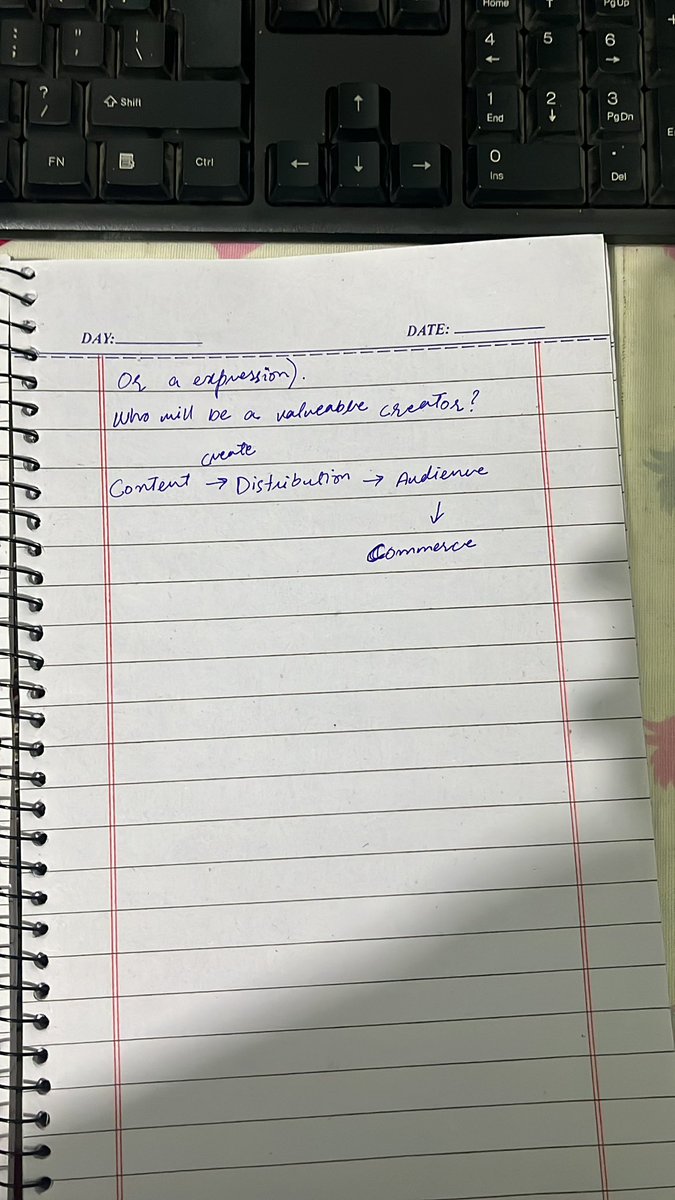 Home
PgUp
: ;
" '
| \
4
5
6
? /
Shift
1 End
2
3 PgDn
FN
Ctrl
0 Ins
. Del
DAY:
DATE:
Or a expression).
Who will be a valueable creator?
create
Content → Distribution → Audience
↓
Commerce